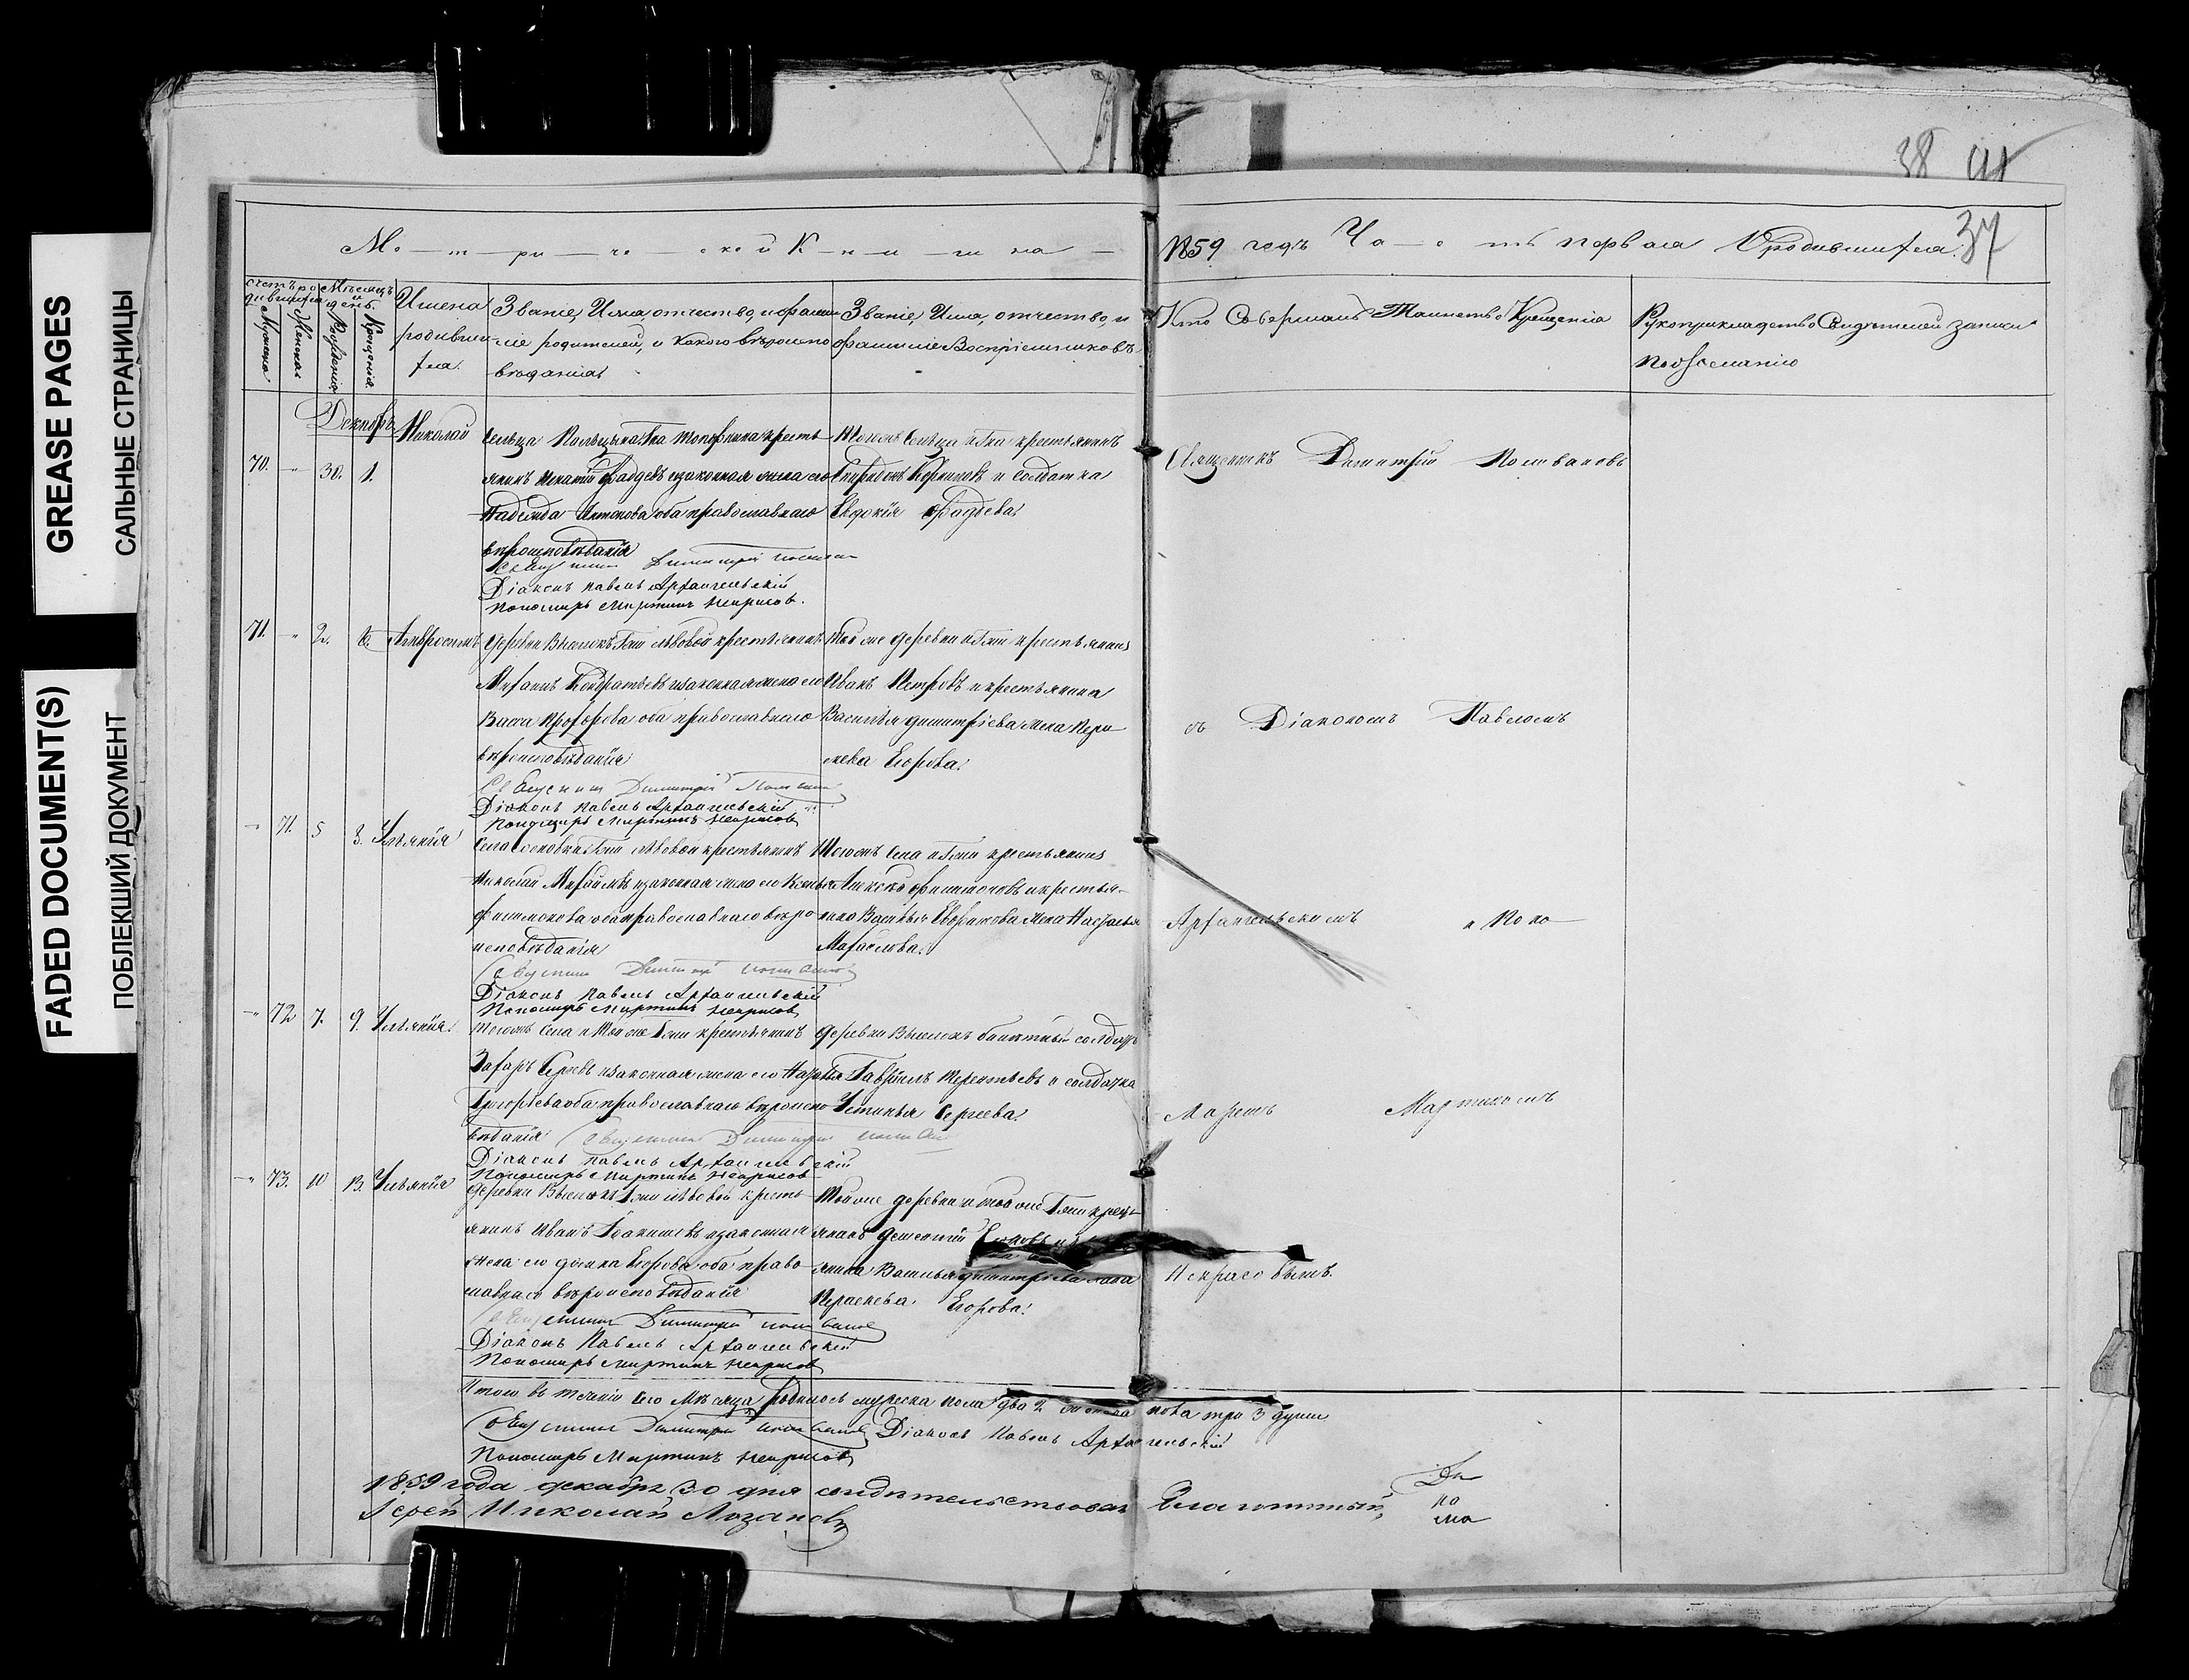 GREASE PAGES
САЛЬНЫЕ СТРАНИЦЫ
FADED DOCUMENT(S)
ПОБЛЕКШИЙ ДОКУМЕНТ
38
37
Ме— т —ри — че — ской К — н — и — ги на —
1859 годъ Ча — с — ть первая О родившихся.
Счетъ родившихся
Мѣсяцъ и день.
Мужска
Женска
Рожденія
Крещенія.
Имена родивших
ся.
Званіе, Имя, отчество, и фами
ліе родителей, и какого вѣроиспо
вѣданія
Званіе, Имя, отчество, и
фамиліе Воспріемниковъ
Кто Совершалъ Таинство Крещенія
Рукоприкладство Свидѣтелей записи
по желанію
Декабрь
70. " 30. 1. Николай
Сельца г на крестъ
янинъ Игнатій Фадѣевъ и законная жена его
Надежда Антонова оба православнаго
вѣроисповѣданія
Священникъ Димитрій
Діаконъ Павелъ Архангельскій
Пономарь Мартинъ Некрасовъ.
Тогожъ Сельца и Гна крестьянинъ
Спиридонъ Корниловъ и солдатка
Евдокія Фадѣева.
Священникъ Димитрій Поливановъ
71. " 2. 6. Амвросимъ
Деревни Выселокъ Гжи Львовой крестьянинъ
Михаилъ Кондратьевъ и законная жена его
Васса Прохорова оба православнаго
вѣроисповѣданія
Священникъ Димитрій
Діаконъ Павелъ Архангельскій
Пономарь Мартинъ Некрасовъ
Той же деревни и Гжи крестьянинъ
Иванъ Петровъ и крестьянина
Василья Димитріева жена Пера
скева Егорова.
съ Діакономъ Павломъ
" 71. 5 8. Ульянія
Села Сосновки Гжи Львовой крестьянинъ
Николай Михайловъ и законная жена его Ксенья
Филимонова оба православнаго вѣро
исповѣданія
Священникъ Димитрій
Діаконъ Павелъ Архангельскій
Пономарь Мартинъ Некрасовъ
Тогожъ Села и Гжи крестьянинъ
Алексѣй Филимоновъ и крестья
нина Василья жена Настасья
Архангельскимъ и Поно
" 72 7. 9. Ульянія.
Тогожъ Села и Той же Гжи крестьянинъ
Захаръ и законная жена его
Григорьева оба православнаго вѣроиспо
вѣданія Священникъ Димитрій
Діаконъ Павелъ Архангельскій
Пономарь Мартинъ Некрасовъ
Деревни Выселокъ билѣтный солдатъ
Гаврiилъ Терентьевъ и солдатка
Устинья Сергѣева.
маремъ Мартиномъ
" 73. 10 13. Ульянія
Деревни Выселокъ Гжи Львовой кресть
янинъ Иванъ и законная
жена его Домна Егорова оба право
славнаго вѣроисповѣданія
Священникъ Димитрій
Діаконъ Павелъ Архангельскій
Пономарь Мартинъ Некрасовъ
Той же деревни и той же Гжи кресть
янинъ
янина Василья Димитріева жена
Параскева Егорова.
Некрасовымъ.
Итого въ теченіи сего Мѣсяца родилось мужеска пола два 2 женска пола три 3 души
Священникъ Димитрій Діаконъ Павелъ Архангельскій
Пономарь Мартинъ Некрасовъ
1859 года декабря 30 дня свидѣтельствовалъ Благочинный,
Іерей Николай Лозановъ
Ди
по
ма